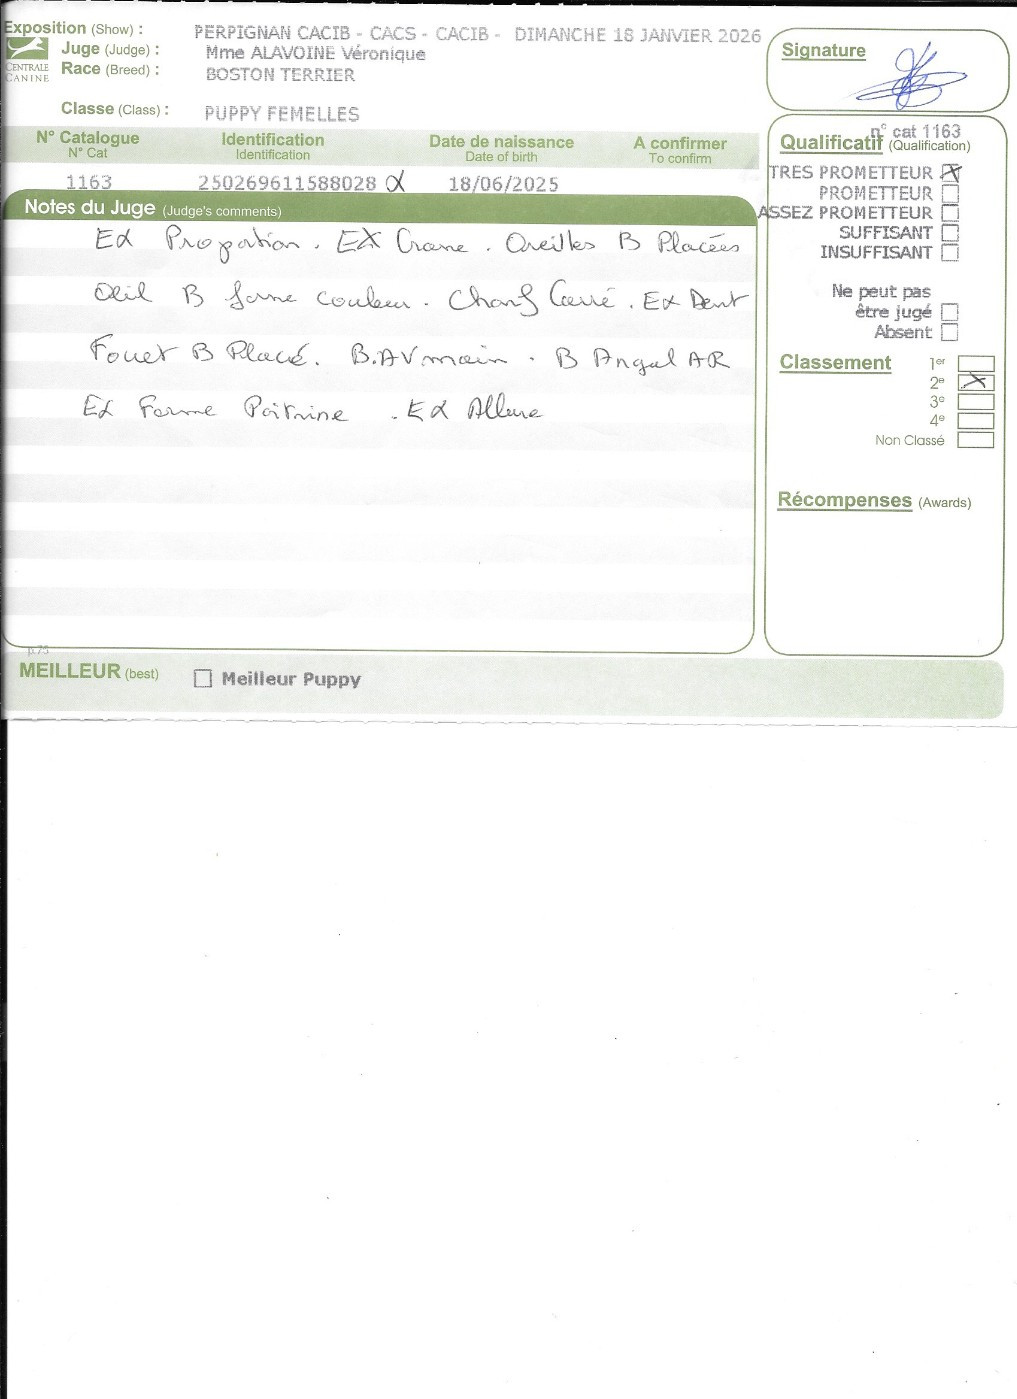 Exposition (Show) : PERPIGNAN CACIB - CACS - CACIB - DIMANCHE 18 JANVIER 2026
Juge (Judge) : Mme ALAVOINE Véronique
CENTRALE CANINE
Race (Breed) : BOSTON TERRIER
Classe (Class) : PUPPY FEMELLES
Signature
N° Catalogue Identification Date de naissance A confirmer
N° Cat Identification Date of birth To confirm
1163 250269611588028 18/06/2025
Notes du Juge (Judge's comments)
Ex Propotion . EX Crane . Oreilles B Placées
Œil B forme couleur . Chanf Carré . Ex Dent
Fouet B Placé. B.AVmain . B Angul AR
Ex Forme Poitrine . Ex Allure
n° cat 1163
Qualificatif (Qualification)
TRES PROMETTEUR
PROMETTEUR
ASSEZ PROMETTEUR
SUFFISANT
INSUFFISANT
Ne peut pas
être jugé
Absent
Classement 1er
2e
3e
4e
Non Classé
Récompenses (Awards)
p.75
MEILLEUR (best) Meilleur Puppy